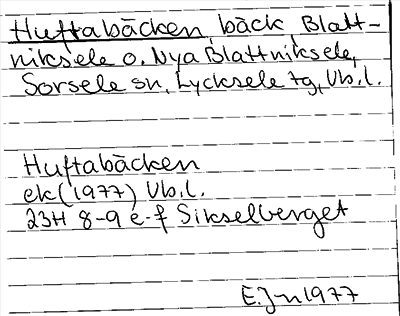 Huftabäcken, bäck, Blatt-
niksele o. Nya Blattniksele,
Sorsele sn, Lycksele tg, Vb.l.
Huftabäcken
ek (1977) Vb.l.
23H 8-9 e-f Sikselberget
E.Jn 1977